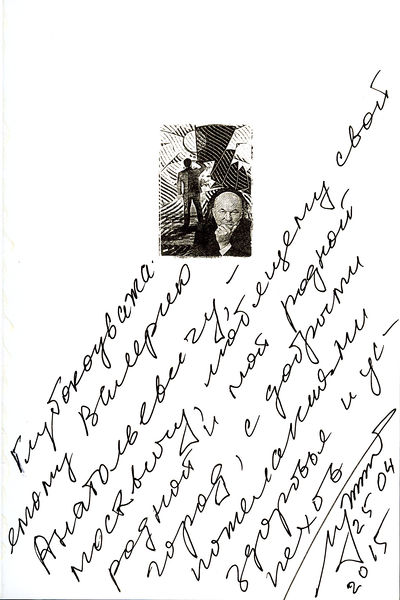 Глубокоуважа-
емому Валерию
Анатольевичу, –
москвичу, любящему свой
родной и мой родной
город, с добрыми
пожеланиями
здоровья и ус-
пехов
25 04
2015